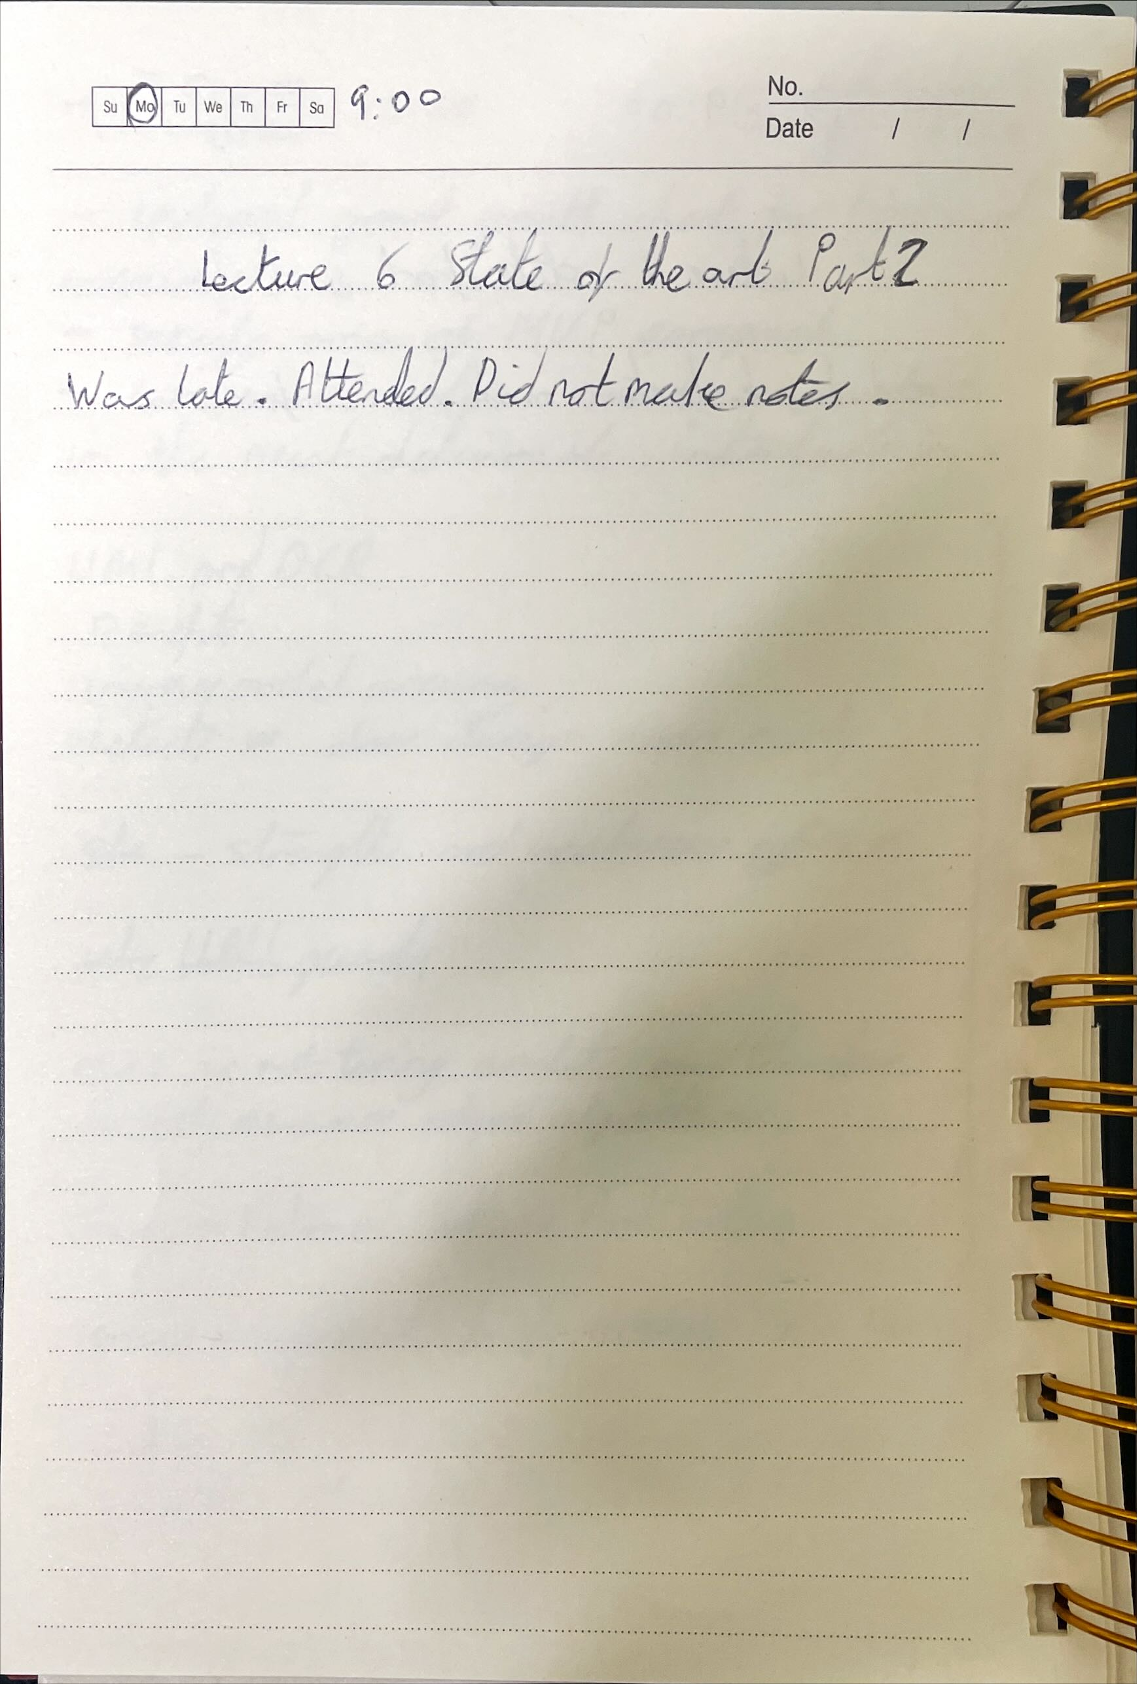 Su Mo Tu We Th Fr Sa 9:00
No.
Date / /
Lecture 6 State of the art Part 2
Was late. Attended. Did not make notes.